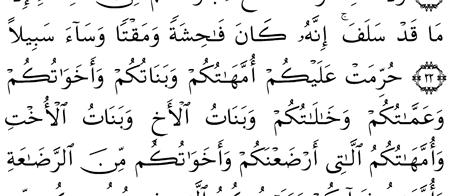 مَا قَدْ سَلَفَ ۚ إِنَّهُۥ كَانَ فَٰحِشَةً وَمَقْتًا وَسَآءَ سَبِيلًا
﴿٢٢﴾ حُرِّمَتْ عَلَيْكُمْ أُمَّهَٰتُكُمْ وَبَنَاتُكُمْ وَأَخَوَٰتُكُمْ
وَعَمَّٰتُكُمْ وَخَٰلَٰتُكُمْ وَبَنَاتُ ٱلْأَخِ وَبَنَاتُ ٱلْأُخْتِ
وَأُمَّهَٰتُكُمُ ٱلَّٰتِىٓ أَرْضَعْنَكُمْ وَأَخَوَٰتُكُم مِّنَ ٱلرَّضَٰعَةِ